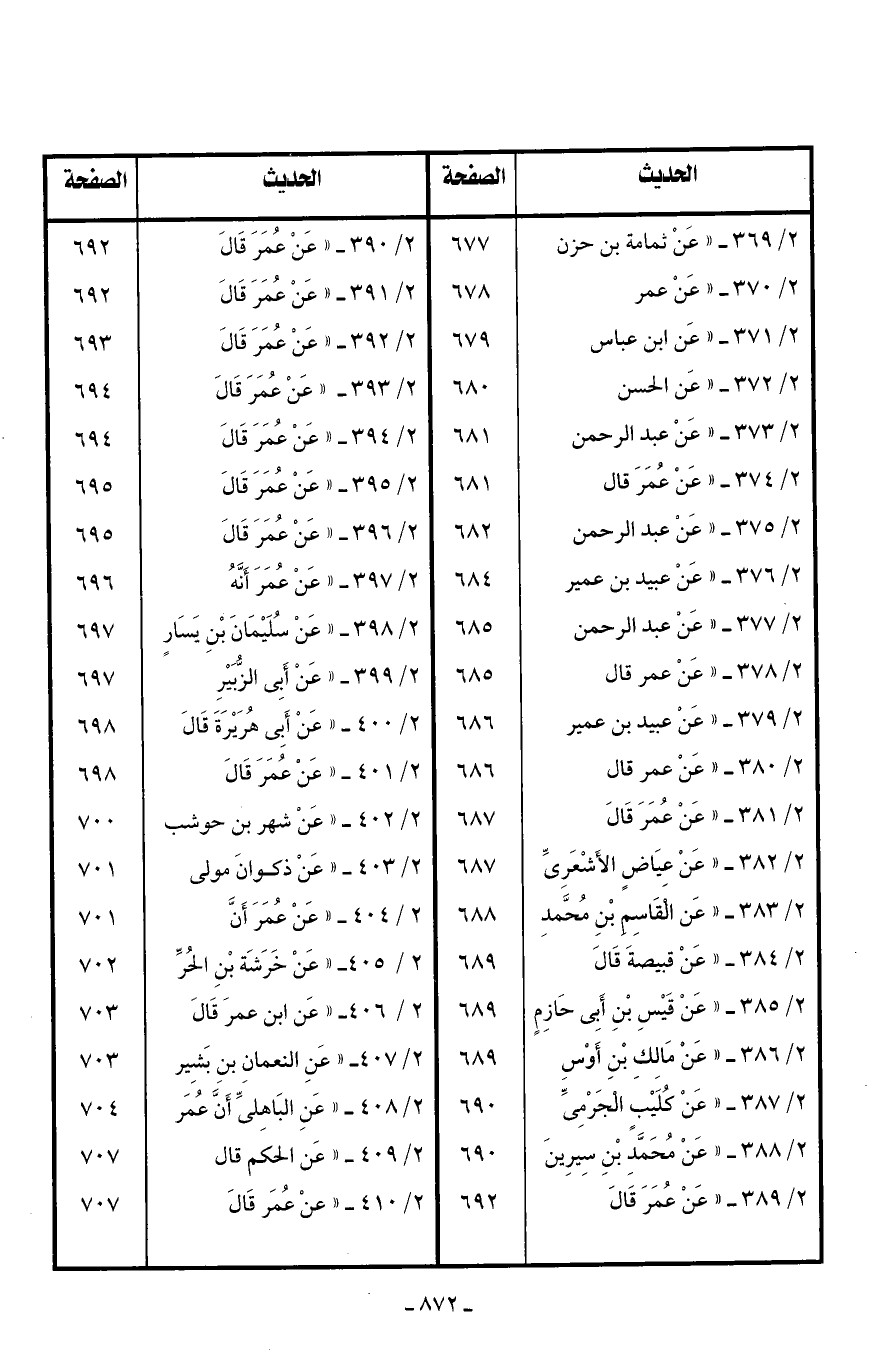 الحديث الصفحة الحديث الصفحة
٢/ ٣٦٩ ـ « عَنْ ثمامة بن حزن ٦٧٧ ٢/ ٣٩٠ ـ « عَنْ عُمَرَ قَالَ ٦٩٢
٢/ ٣٧٠ ـ « عَنْ عمر ٦٧٨ ٢/ ٣٩١ ـ « عَنْ عُمَرَ قَالَ ٦٩٢
٢/ ٣٧١ ـ « عَن ابن عباس ٦٧٩ ٢/ ٣٩٢ ـ « عَنْ عُمَرَ قَالَ ٦٩٣
٢/ ٣٧٢ ـ « عَن الحسن ٦٨٠ ٢/ ٣٩٣ ـ « عَنْ عُمَرَ قَالَ ٦٩٤
٢/ ٣٧٣ ـ « عَنْ عبد الرحمن ٦٨١ ٢/ ٣٩٤ ـ « عَنْ عُمَرَ قَالَ ٦٩٤
٢/ ٣٧٤ ـ « عَنْ عُمَرَ قال ٦٨١ ٢/ ٣٩٥ ـ « عَنْ عُمَرَ قَالَ ٦٩٥
٢/ ٣٧٥ ـ « عَنْ عبد الرحمن ٦٨٢ ٢/ ٣٩٦ ـ « عَنْ عُمَرَ قَالَ ٦٩٥
٢/ ٣٧٦ ـ « عَنْ عبيد بن عمير ٦٨٤ ٢/ ٣٩٧ ـ « عَنْ عُمَرَ أَنَّهُ ٦٩٦
٢/ ٣٧٧ ـ « عَنْ عبد الرحمن ٦٨٥ ٢/ ٣٩٨ ـ « عَنْ سُلَيْمَانَ بْنِ يَسَارٍ ٦٩٧
٢/ ٣٧٨ ـ « عَنْ عمر قال ٦٨٥ ٢/ ٣٩٩ ـ « عَنْ أَبِى الزُّبَيْرِ ٦٩٧
٢/ ٣٧٩ ـ « عَنْ عبيد بن عمير ٦٨٦ ٢/ ٤٠٠ ـ « عَنْ أَبِى هُرَيْرَةَ قَالَ ٦٩٨
٢/ ٣٨٠ ـ « عَنْ عمر قال ٦٨٦ ٢/ ٤٠١ ـ « عَنْ عُمَرَ قَالَ ٦٩٨
٢/ ٣٨١ ـ « عَنْ عُمَرَ قَالَ ٦٨٧ ٢/ ٤٠٢ ـ « عَنْ شهر بن حوشب ٧٠٠
٢/ ٣٨٢ ـ « عَنْ عِيَاضٍ الأَشْعَرِىِّ ٦٨٧ ٢/ ٤٠٣ ـ « عَنْ ذكـوانَ مولى ٧٠١
٢/ ٣٨٣ ـ « عَنِ الْقَاسِمِ بْنِ مُحَمَّدِ ٦٨٨ ٢ / ٤٠٤ ـ « عَنْ عُمَرَ أَنَّ ٧٠١
٢/ ٣٨٤ ـ « عَنْ قبيصةَ قَالَ ٦٨٩ ٢ / ٤٠٥ـ « عَنْ خَرَشَةَ بْنِ الحُرِّ ٧٠٢
٢/ ٣٨٥ ـ « عَنْ قَيْسِ بْنِ أَبِى حَازِمٍ ٦٨٩ ٢ / ٤٠٦ـ « عَن ابن عمرَ قَالَ ٧٠٣
٢/ ٣٨٦ ـ « عَنْ مَالكِ بْنِ أَوْسِ ٦٨٩ ٢/ ٤٠٧ـ « عَنِ النعمان بنِ بَشيِر ٧٠٣
٢/ ٣٨٧ ـ « عَنْ كُلَيْبٍ الْجَرْمِىِّ ٦٩٠ ٢/ ٤٠٨ ـ « عَنِ البَاهلىِّ أَنَّ عُمَرَ ٧٠٤
٢/ ٣٨٨ ـ « عَنْ مُحَمَّدِ بْنِ سِيرِينَ ٦٩٠ ٢/ ٤٠٩ ـ « عَن الحكم قال ٧٠٧
٢/ ٣٨٩ ـ « عَنْ عُمَرَ قَالَ ٦٩٢ ٢/ ٤١٠ ـ « عنْ عُمَر قَالَ ٧٠٧
ـ ٨٧٢ ـ